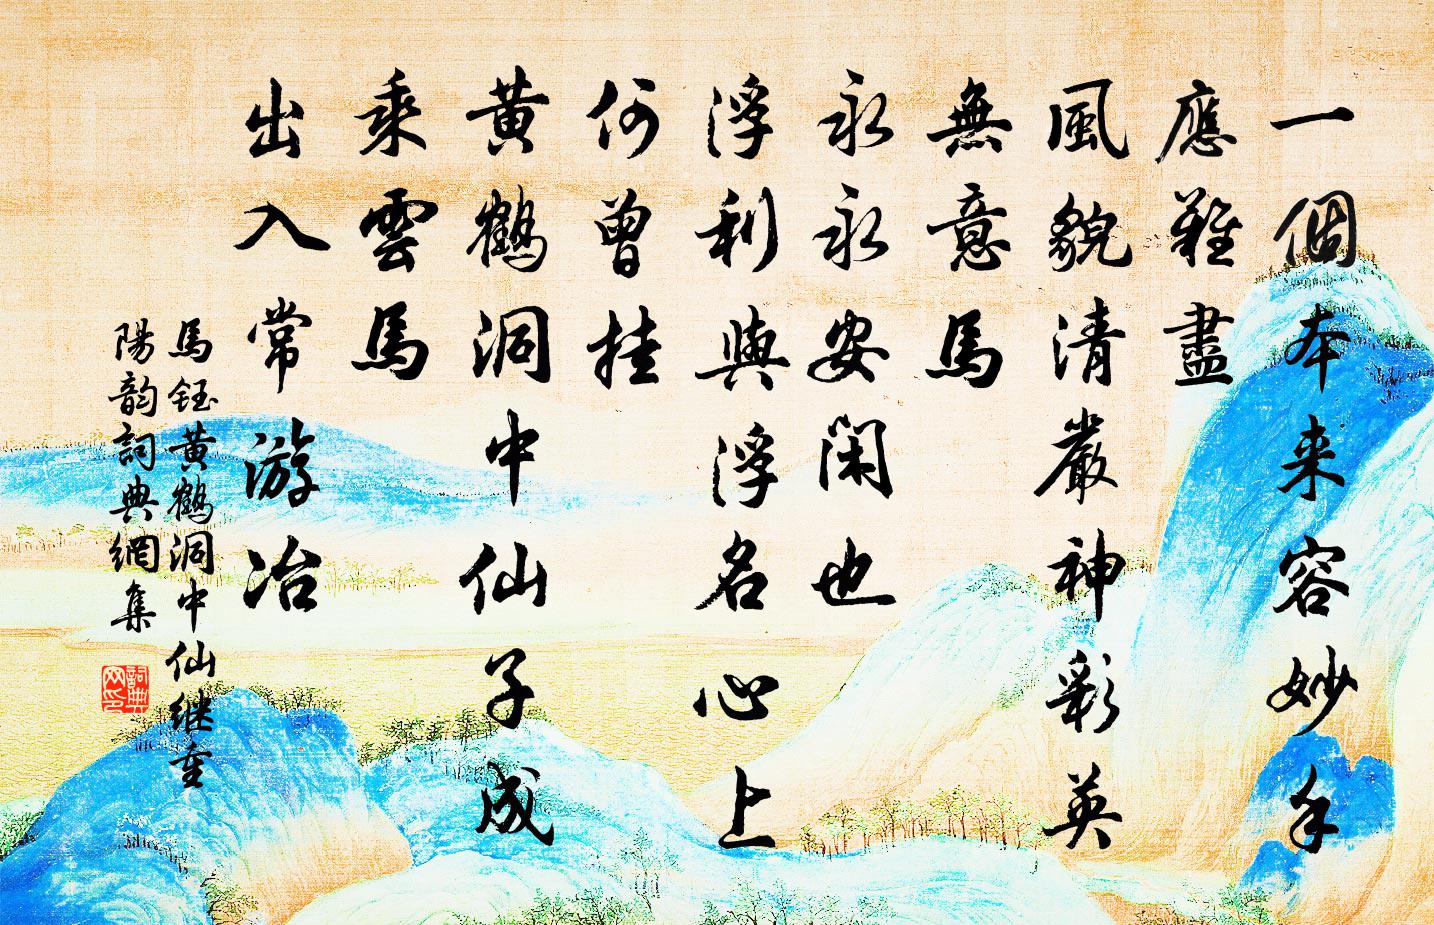 一個本来容妙手
應難盡
風貌清嚴神彩英
無意馬
永永安閑也
浮利與浮名心上
何曾挂
黃鶴洞中仙子成
乘雲馬
出入常游冶
馬鈺黃鶴洞中仙继重
陽韵詞典網集
詞典网印